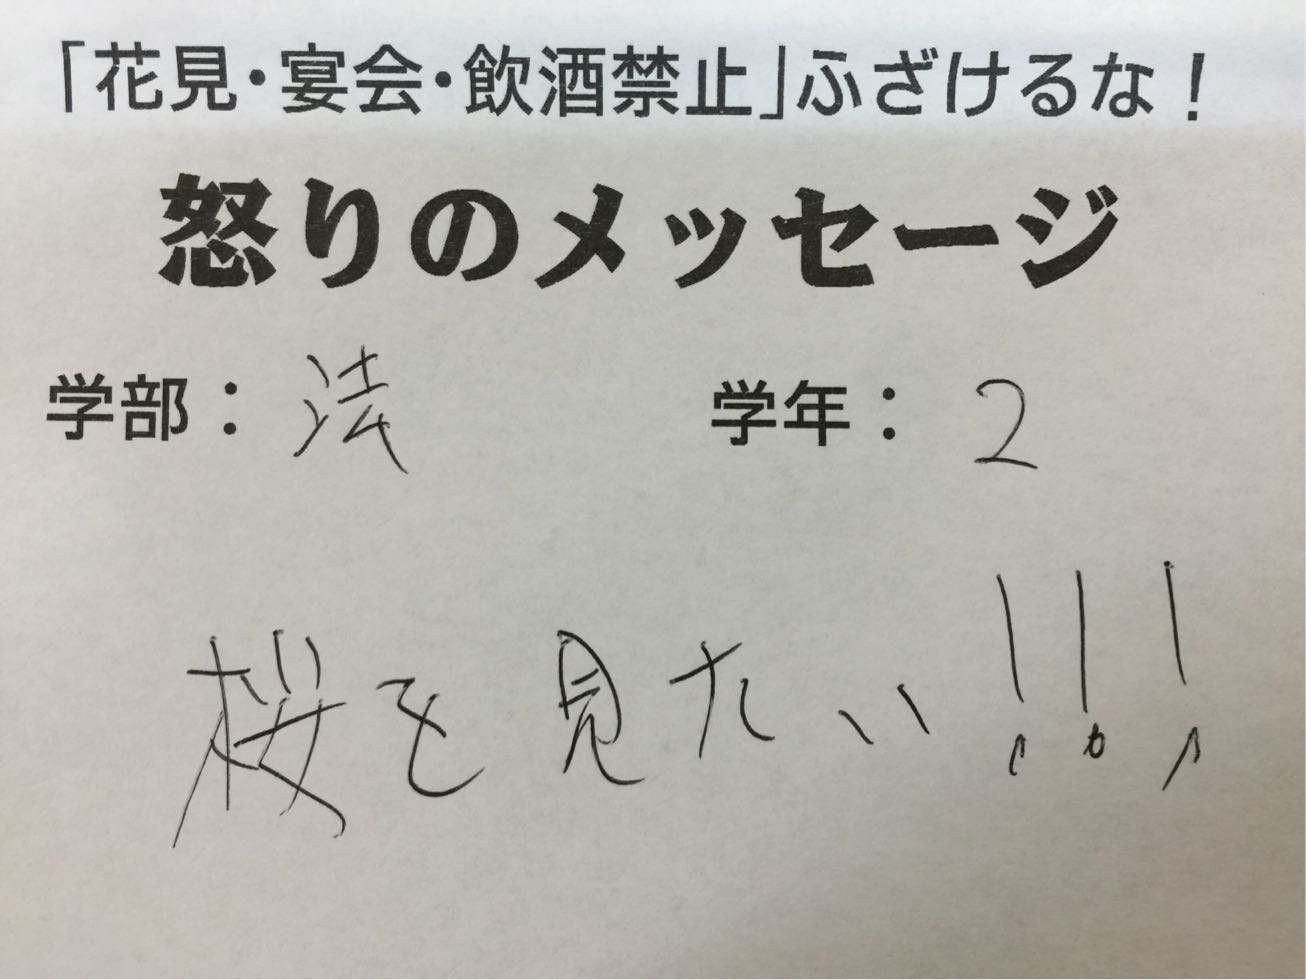 「花見・宴会・飲酒禁止」ふざけるな！
怒りのメッセージ
学部：法 学年：2
桜を見たい!!!